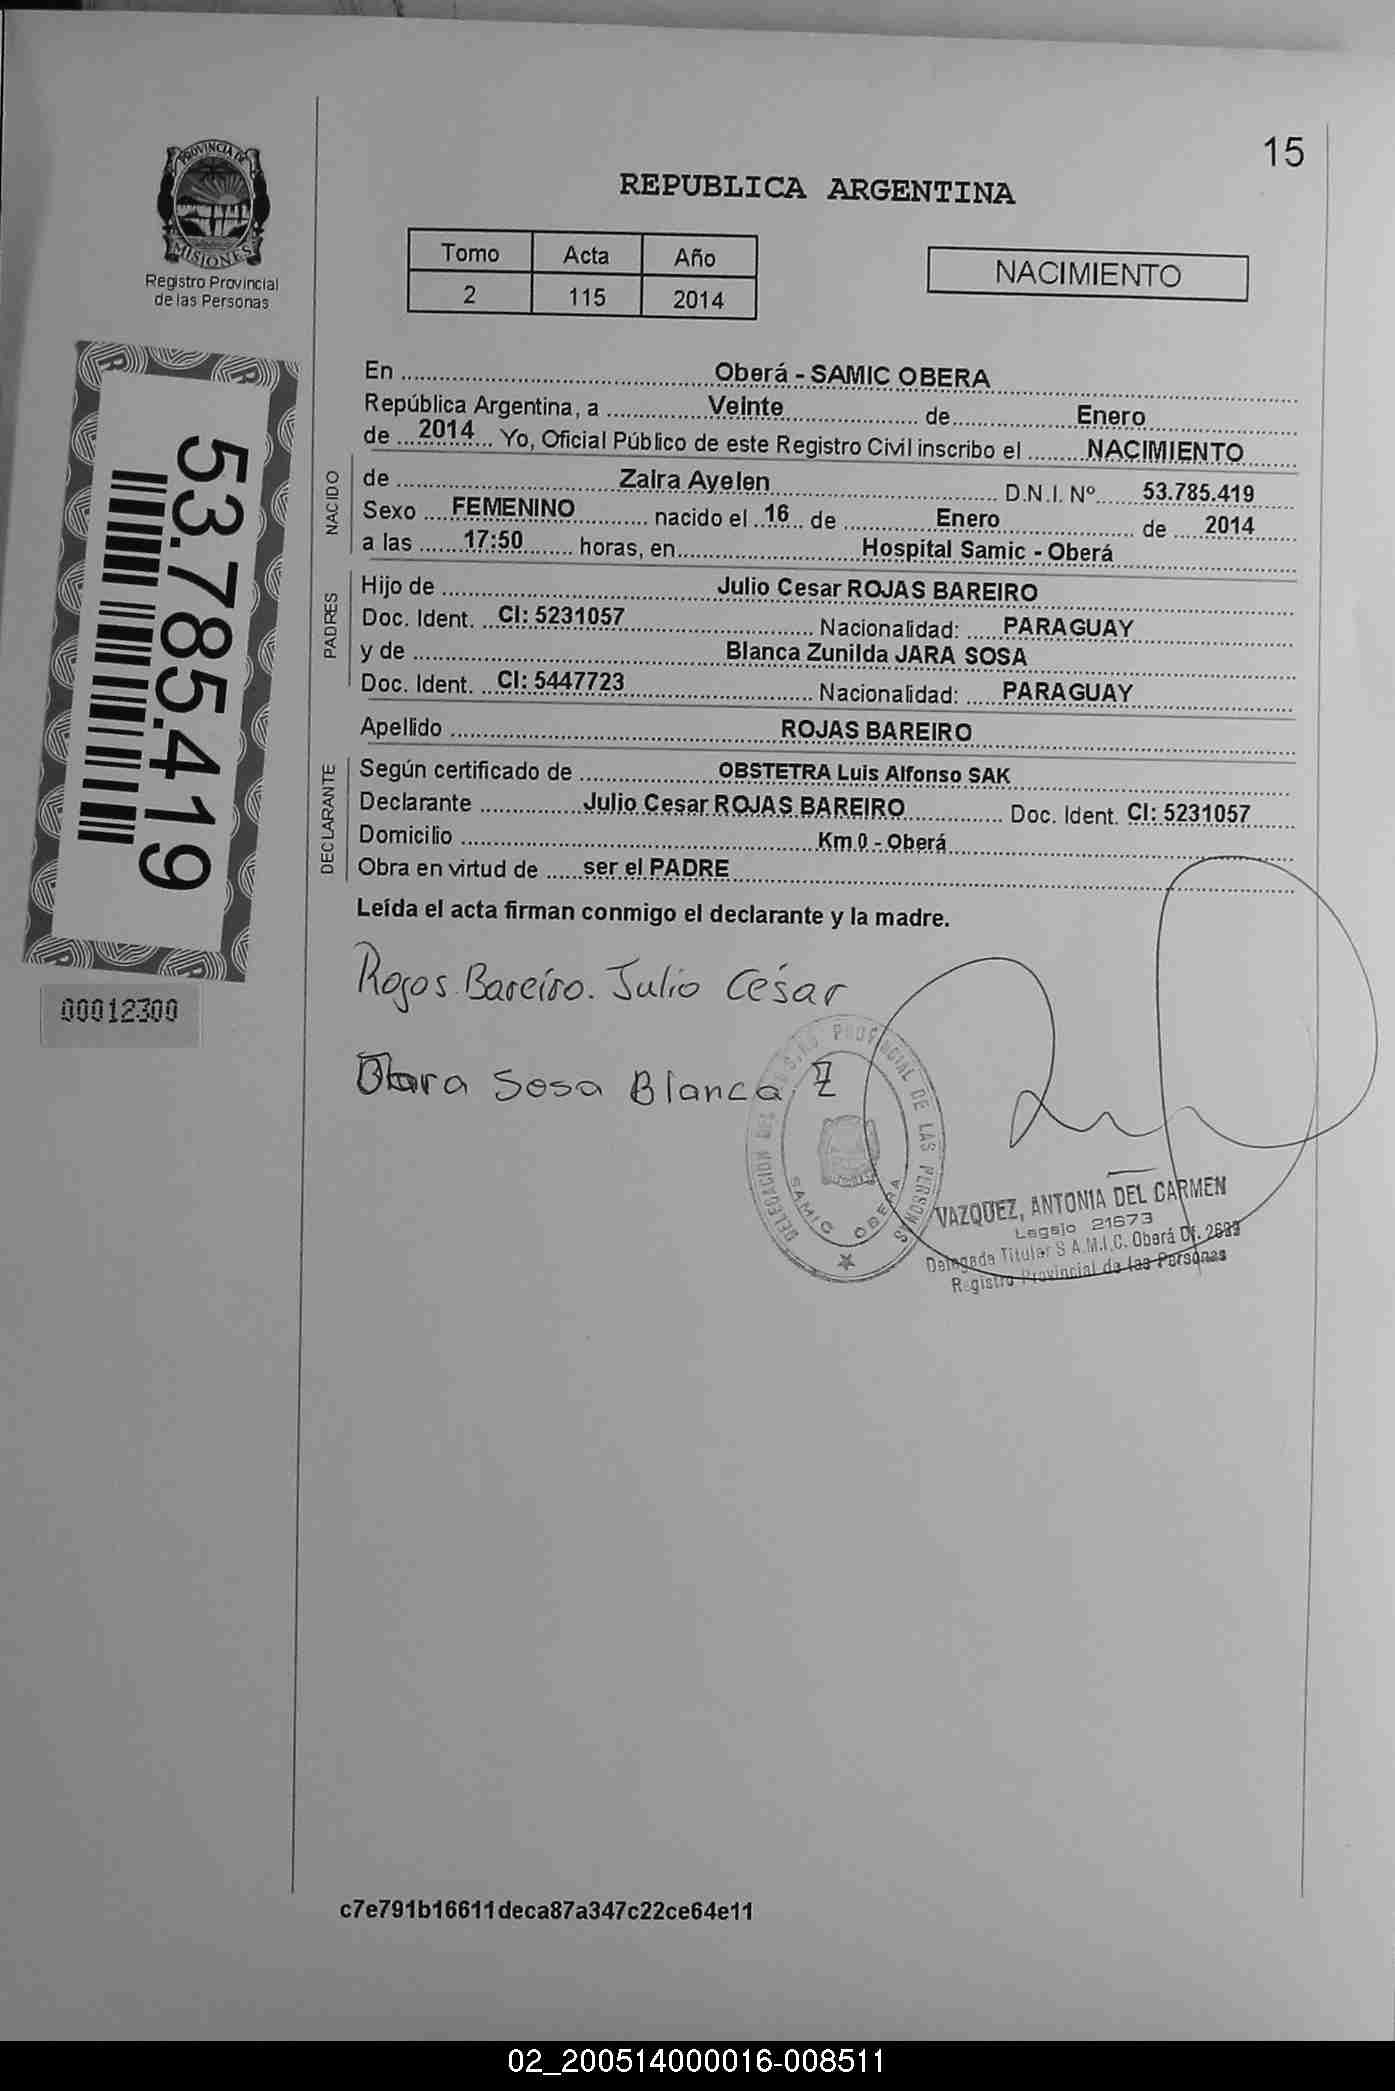 15
PROVINCIA DE
MISIONES
Registro Provincial
de las Personas
REPUBLICA ARGENTINA
Tomo Acta Año
2 115 2014
NACIMIENTO
53.785.419
00012300
En Oberá - SAMIC OBERA
República Argentina, a Veinte de Enero
de 2014 Yo, Oficial Público de este Registro Civil inscribo el NACIMIENTO
NACIDO
de Zaira Ayelen D.N.I. Nº 53.785.419
Sexo FEMENINO nacido el 16 de Enero de 2014
a las 17:50 horas, en Hospital Samic - Oberá
PADRES
Hijo de Julio Cesar ROJAS BAREIRO
Doc. Ident. CI: 5231057 Nacionalidad: PARAGUAY
y de Blanca Zunilda JARA SOSA
Doc. Ident. CI: 5447723 Nacionalidad: PARAGUAY
Apellido ROJAS BAREIRO
DECLARANTE
Según certificado de OBSTETRA Luis Alfonso SAK
Declarante Julio Cesar ROJAS BAREIRO Doc. Ident. CI: 5231057
Domicilio Km 0 - Oberá
Obra en virtud de ser el PADRE
Leída el acta firman conmigo el declarante y la madre.
Rojas Bareiro. Julio César
Sosa Blanca Z
PROVINCIAL DE LAS PERSONAS
DELEGACION DEL
SAMIC OBERA
VAZQUEZ, ANTONIA DEL CARMEN
Legajo 21673
Delegada Titular S.A.M.I.C. Oberá Of.
Registro Provincial de las Personas
c7e791b16611deca87a347c22ce64e11
02_200514000016-008511